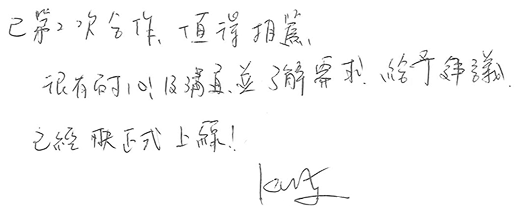 已第2次合作、值得推薦、
很有耐心及溝通、並了解需求、給予建議、
已經快正式上線!